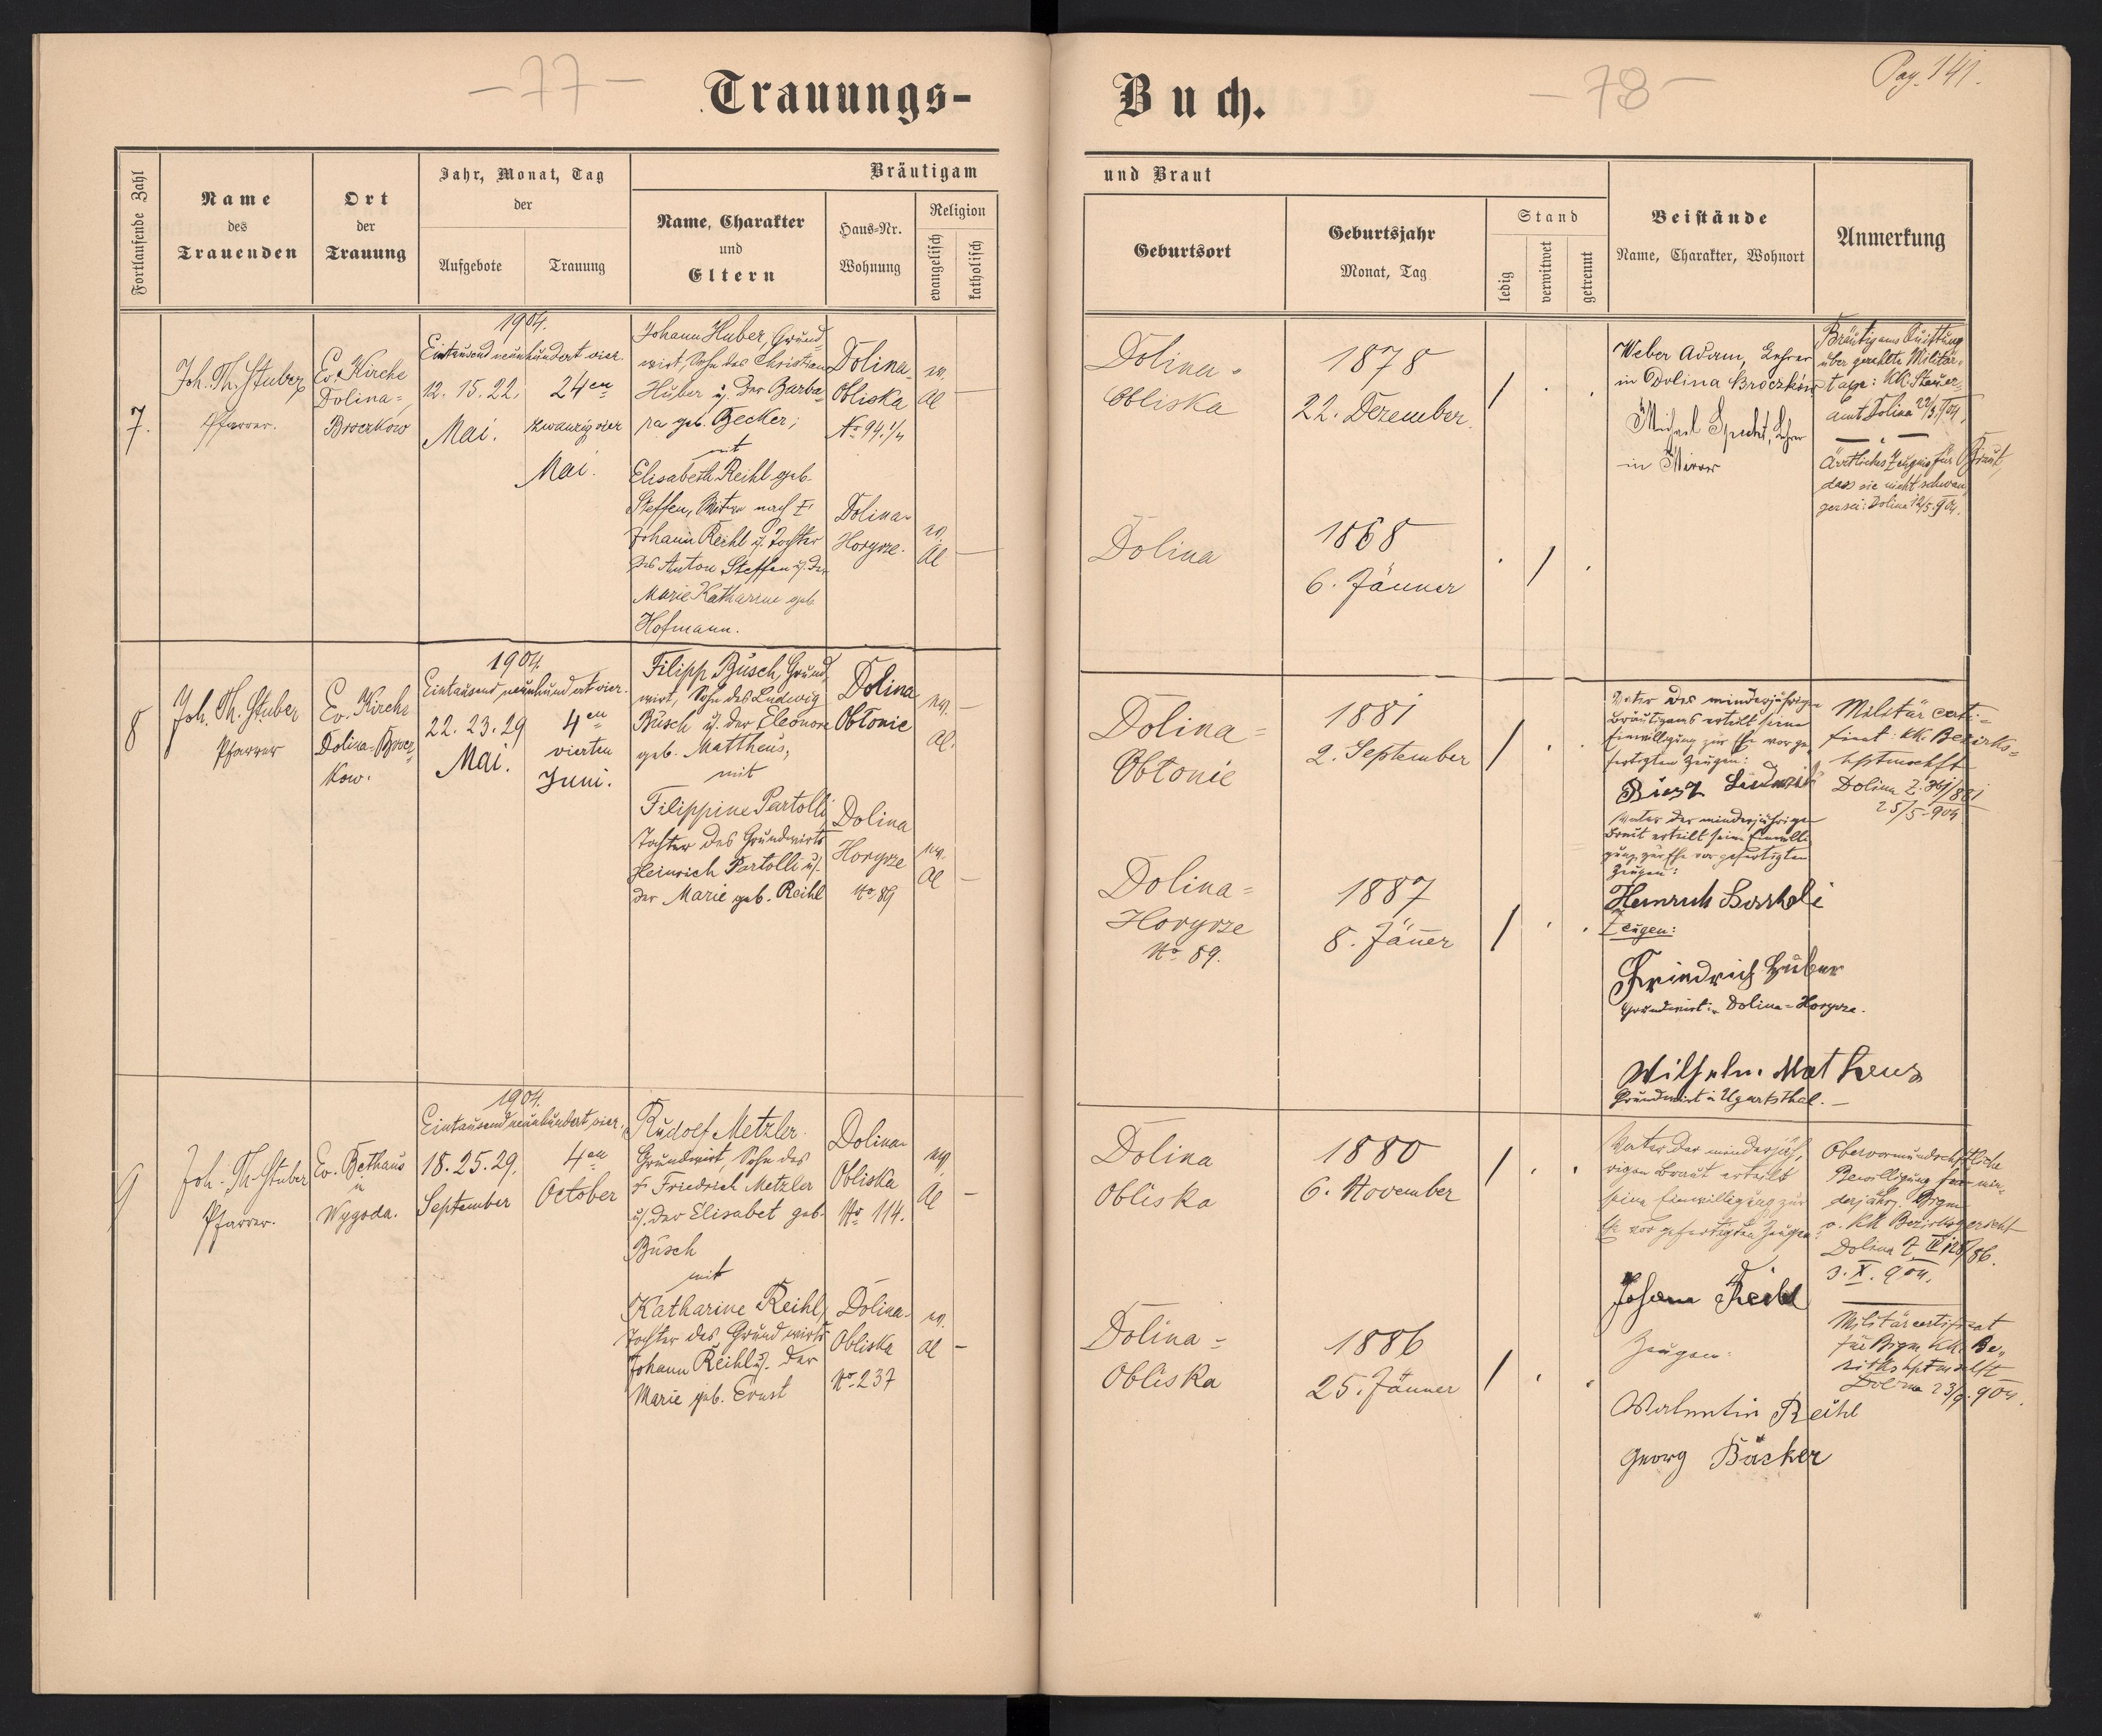 — 77 —
Trauungs-
Fortlaufende Zahl
Name
des
Trauenden
Ort
der
Trauung
Jahr, Monat, Tag
der
Aufgebote
Trauung
Bräutigam
Name, Charakter
und
Eltern
Haus-Nr.
Wohnung
Religion
evangelisch
katholisch
7.
Joh. Th. Stuber
Pfarrer.
Ev. Kirche
Dolina-
Broczkow
1904.
Eintausend neunhundert vier.
12. 15. 22.
Mai.
24en
zwanzig vier
Mai.
Johann Huber, Grund
wirt, Sohn des Christian
Huber u. der Barba-
ra geb. Becker;
mit
Elisabeth Reihl geb.
Steffen, Witwe nach
Johann Reihl u. Tochter
des Anton Steffen u. der
Marie Katharine geb.
Hofmann.
Dolina-
Obliska
No 94. 1/4
Dolina-
Horyrze.
ev.
Al —
ev.
Al —
8
Joh. Th. Stuber
Pfarrer
Ev. Kirche
Dolina-Brocz
kow.
1904.
Eintausend neunhundert vier.
22. 23. 29
Mai.
4en
vierten
Juni.
Filipp Büsch, Grund
wirt, Sohn des Ludwig
Büsch u. der Eleonore
geb. Mattheus,
mit
Filippine Partolli
Tochter des Grundwirts
Heinrich Partolli u.
der Marie geb. Reihl
Dolina
Obłonie
Dolina
Horyrze
No 89
ev. —
Al.
ev.
Al —
9
Joh. Th. Stuber
Pfarrer.
Ev. Bethaus
in
Wygoda.
1904.
Eintausend neunhundert vier.
18. 25. 29.
September
4en
October
Rudolf Metzler
Grundwirt, Sohn des
† Friedrich Metzler
u. der Elisabet geb.
Büsch
mit
Katharine Reihl,
Tochter des Grundwirts
Johann Reihl u. der
Marie geb. Ernst
Dolina-
Obliska
No 114.
Dolina-
Obliska
No 237
ev.
Al —
ev.
Al —
Buch.
— 78 —
Pag. 141.
und Braut
Geburtsort
Geburtsjahr
Monat, Tag
Stand
ledig
verwitwet
getrennt
Beistände
Name, Charakter, Wohnort
Anmerkung
Dolina-
Obliska
1878
22. Dezember.
Dolina
1868
6. Jänner
Weber Adam, Lehrer
in Dolina Broczków
Michael Specht, Lehrer
in
Bräutigams Quittung
über gezahlte Militär-
taxe: KK. Steuer-
amt Dolina 22/3.904.
Ärztliches Zeugnis für Braut,
dass sie nicht schwan
ger sei: Dolina 12/5.904.
Dolina=
Obłonie
1881
2. September
Dolina=
Horyrze
No 89.
1887
8. Jäner
Vater des minderjährigen
Bräutigams erteilt seine
Einwilligung zur Ehe vor ge-
fertigten Zeugen:
Vater der minderjährigen
Braut erteilt seine Einwilli-
gung zur Ehe vor gefertigten
Zeugen:
Heinrich
Zeugen:
Friedrich Huber
Grundwirt in Dolina-Horyrze.
Wilhelm Matheus
Grundwirt in Ugartsthal. —
Militärcerti=
ficat: KK. Bezirks=
hptmschft
Dolina
25/5-904.
Dolina
Obliska
1880
6. November
Dolina-
Obliska
1886
25. Jänner
Vater der minderjäh-
rigen Braut erteilt
seine Einwilligung zur
Ehe vor gefertigten Zeugen:
Johann Reihl
Zeugen:
Valentin Reihl
Georg Bäcker
Obervormundschftliche
Bewilligung für min-
derjähr. Brgm
v. KK Bezirksgericht
Dolina
3. X. 904.
Militärcertificat
für Brgm, KK. Be-
zirkshptmschft
Dolina 23/9.904.